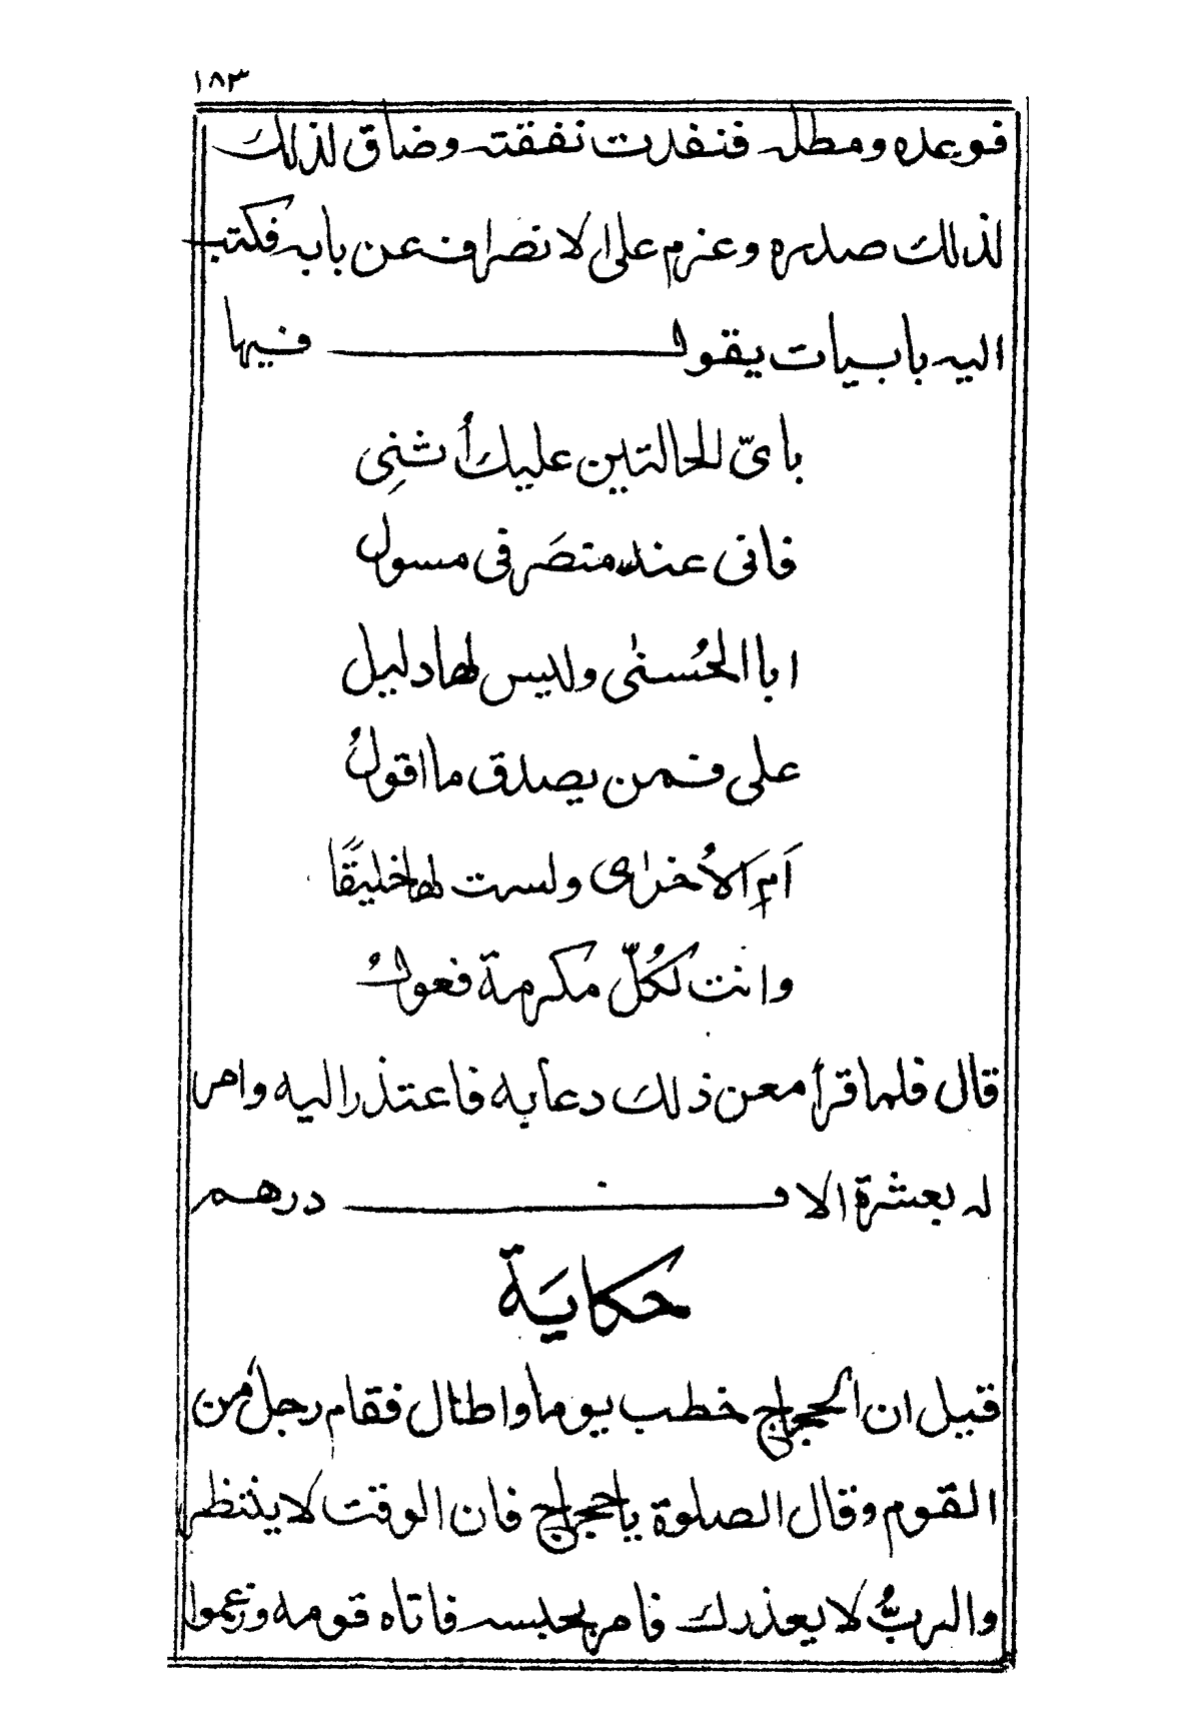 ١٨٣
فوعده ومطله فنفدت نفقته وضاق لذلك
لذلك صدره وعزم على الانصراف عن بابه فكتب
اليه بابيات يقول فيها
باىّ الحالتين عليك أثنِى
فانى عند منصَرفى مسول
ابا الحُسنى وليس لها دليل
على فمن يصدق ما اقولُ
اَم الاُخرى ولست لها خليقًا
وانت لكُلّ مكرمة فعولُ
قال فلما قرأ معن ذلك دعا به فاعتذر اليه وامر
له بعشرة الاف درهم
حكايَة
قيل ان الحجاج خطب يوما واطال فقام رجل من
القوم وقال الصلوة يا حجاج فان الوقت لا ينتظر
والربُّ لا يعذرك فامر بحبسه فاتاه قومه وزعموا